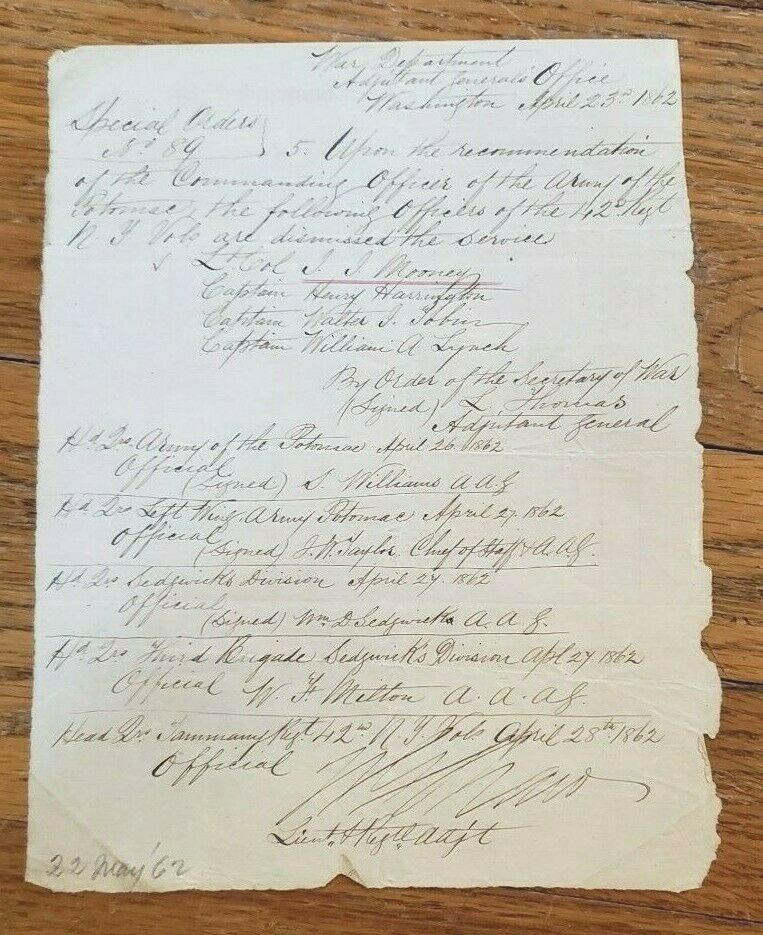 War Department
Adjutant General's Office
Washington April 23rd 1862
Special Orders
No 89 } 5. Upon the recommendation
of the Commanding Officer of the Army of the
Potomac, the following Officers of the 42d Regt
N Y Vols are dismissed the service
Lt Col J. J. Mooney
Captain Henry Harrington
Captain Walter J. Tobin
Captain William A Lynch
By Order of the Secretary of War
(Signed) L. Thomas
Adjutant General
Hd Qrs Army of the Potomac April 26 1862
Official
(Signed) S. Williams A A G
Hd Qrs Left Wing Army Potomac April 27. 1862
Official
(Signed) J. W. Taylor. Chief of Staff & A. A. G.
Hd Qrs Sedgwick's Division April 27 1862
Official
(Signed) Wm D Sedgwick A. A. G.
Hd Qrs Third Brigade Sedgwick's Division Apl 27 1862
Official W. F. Milton A. A. A G.
Head Qrs Tammany Regt 42nd N. Y. Vols April 28th 1862
Official
Lieut & Regtl Adjt
22 May '62